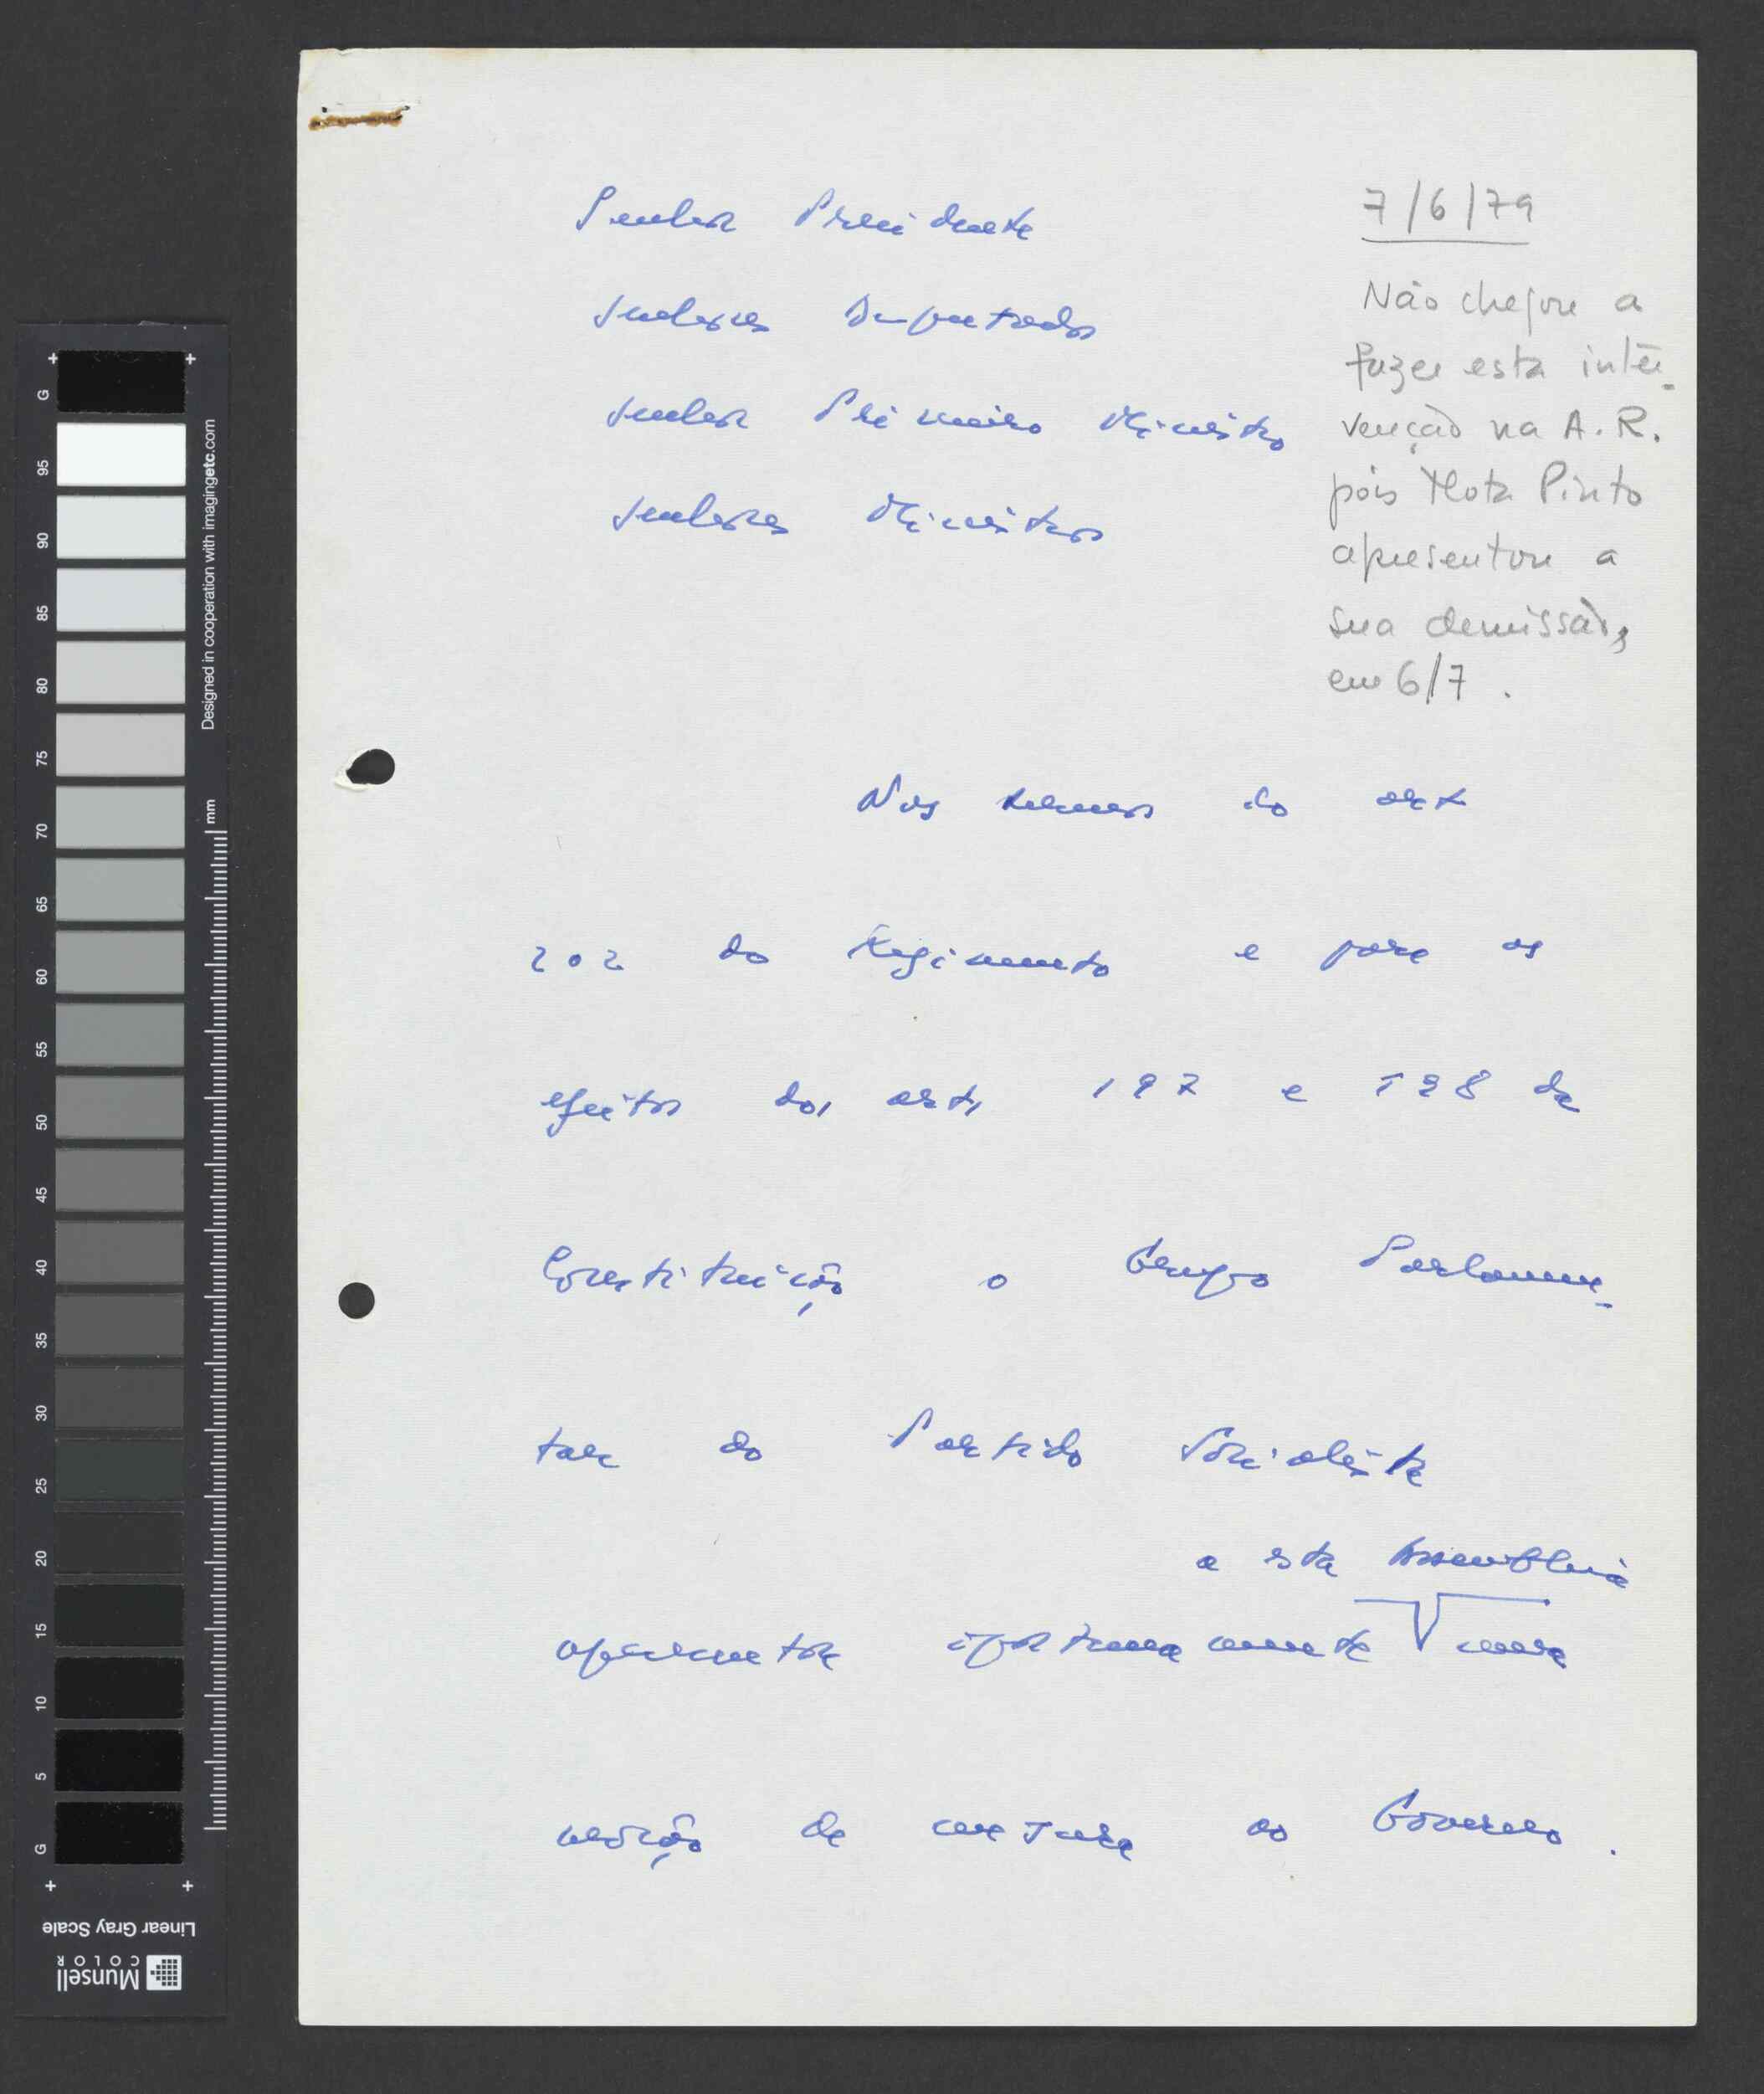 Senhor Presidente
Senhores Deputados
Senhor Primeiro Ministro
Senhores Ministros
7/6/79
Não chegou a
fazer esta inter-
venção na A.R.
pois Mota Pinto
apresentou a
sua demissão,
em 6/7.
Nos termos do art
202 do Regimento e para os
efeitos dos arts 197 e 198 da
Constituição o Grupo Parlamen-
tar do Partido Socialista
a esta Assembleia
apresentou oportunamente uma
moção de censura ao Governo.
G 95 90 85 80 75 70 65 60 55 50 45 40 35 30 25 20 15 10 5 G
Designed in cooperation with imagingetc.com
mm
Linear Gray Scale
Munsell
COLOR